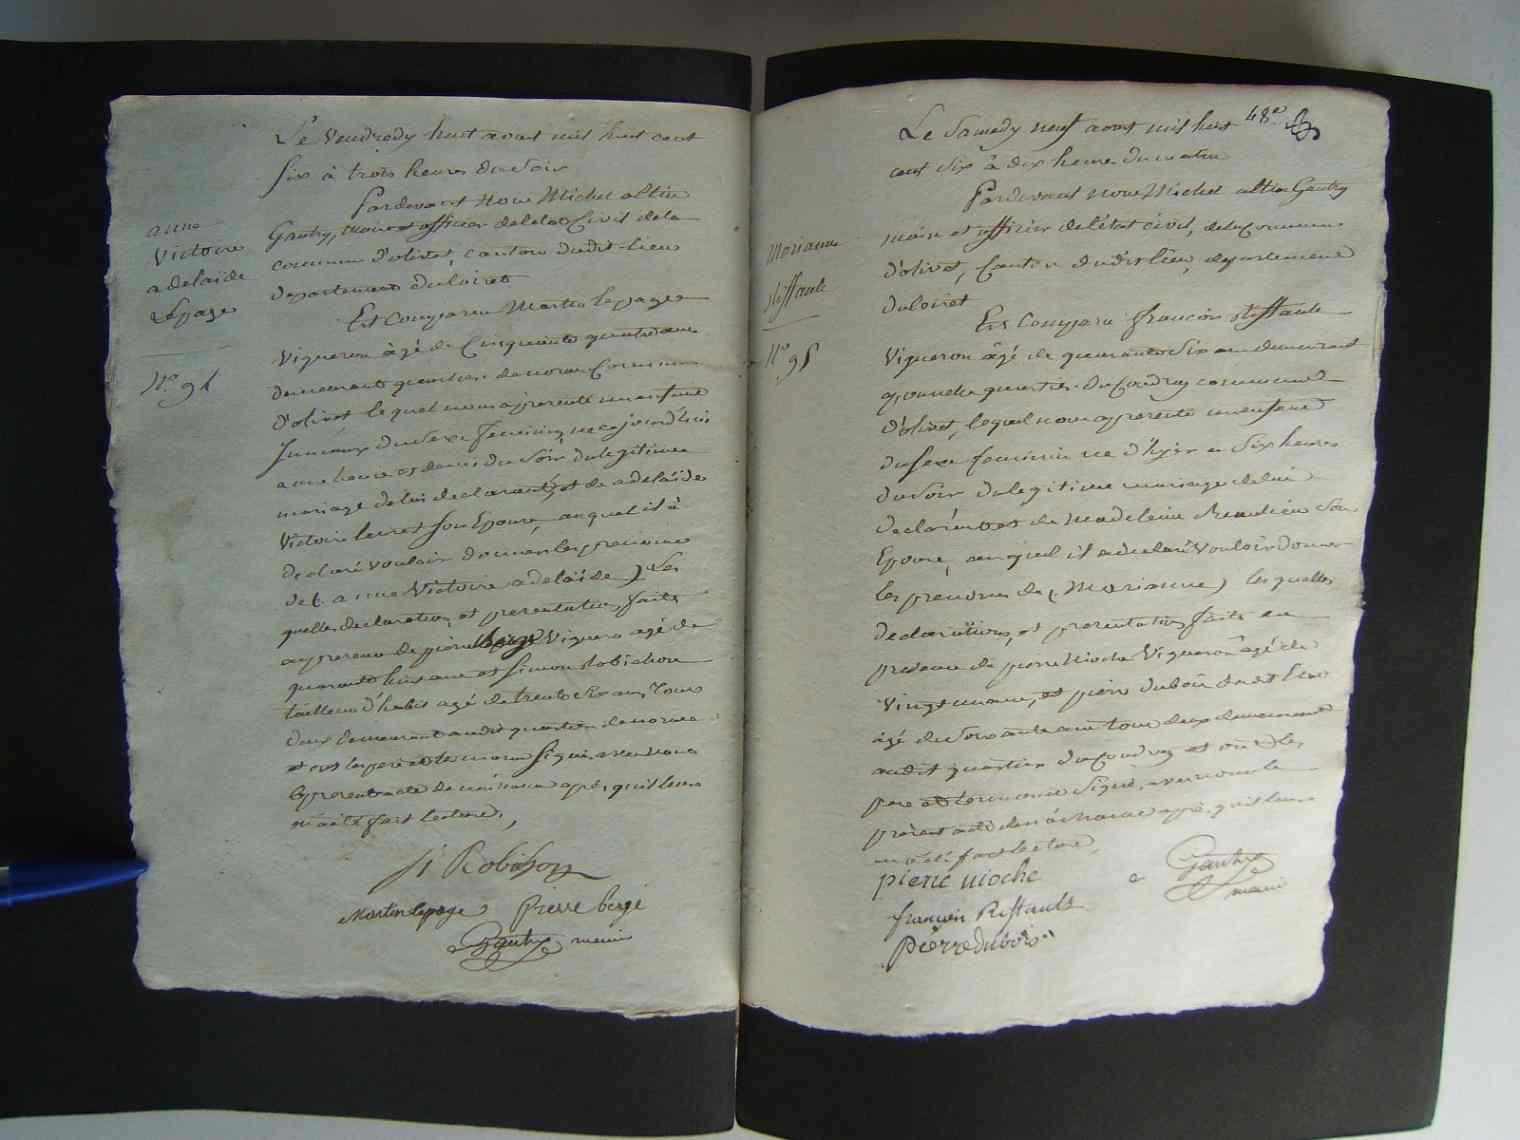 Le Vendredy huit aout mil huit cent
six à trois heures du soir
Pardevant nous Michel altin
Gautry, maire et officier de l'état Civil de la
commune d'olivet, canton dudit lieu
departement du loiret
anne
Victoire
adelaide
Lepage
N.o 94
Est Comparu Martin lepage
Vigneron âgé de Cinquante quatre ans
demeurant quartier de
d'olivet lequel nous a presenté un enfant
du sexe feminin, né cejourd'hui
a une heure et demie du soir du legitime
mariage de lui declarant, et de adelaïde
Victoire son Epouse, auquel il à
declaré vouloir donner les prenoms
de (anne Victoire adelaïde) Les
quelles declaration et presentation faite
en presence de pierre Vigneron agé de
quarante huit ans et Simon Robichon
tailleur d'habit agé de trente six ans, Tous
deux demeurant audit quartier de
et ont les pere et temoins Signé avec nous
le present acte de naissance après qu'il leur
en a été fait lecture,
Si Robichon
Martin lepage Pierre bergé
Gautry maire
48e
Le Samedy neuf aout mil huit
cent six à dix heures du matin
Pardevant nous Michel altin Gautry
maire et officier de l'état civil, de la Commune
d'olivet, Canton dudit lieu, departement
du loiret
Marianne
Riffault
N.o 95
Est Comparu françois Riffault
Vigneron âgé de quarante Six ans demeurant
quartier du Coudray commune
d'olivet, lequel nous a presenté un enfant
du sexe feminin né d'hyer a Six heures
du soir du legitime mariage de lui
declarant et de Madeleine Beaulieu Son
Epouse, auquel il a declaré Vouloir donner
les prenoms de (Marianne) lesquelles
declaration, et presentation faite en
presence de pierre Nioche Vigneron âgé de
Vingt un ans, et pierre Dubois dudit lieu
âgé de soixante ans tous deux demeurant
audit quartier du Coudray et ont les
pere et temoins Signé, avec nous le
present acte de naissance après qu'il leur
en a été fait lecture,
pierre nioche
Gautry
maire
françois Riffault
Pierre dubois